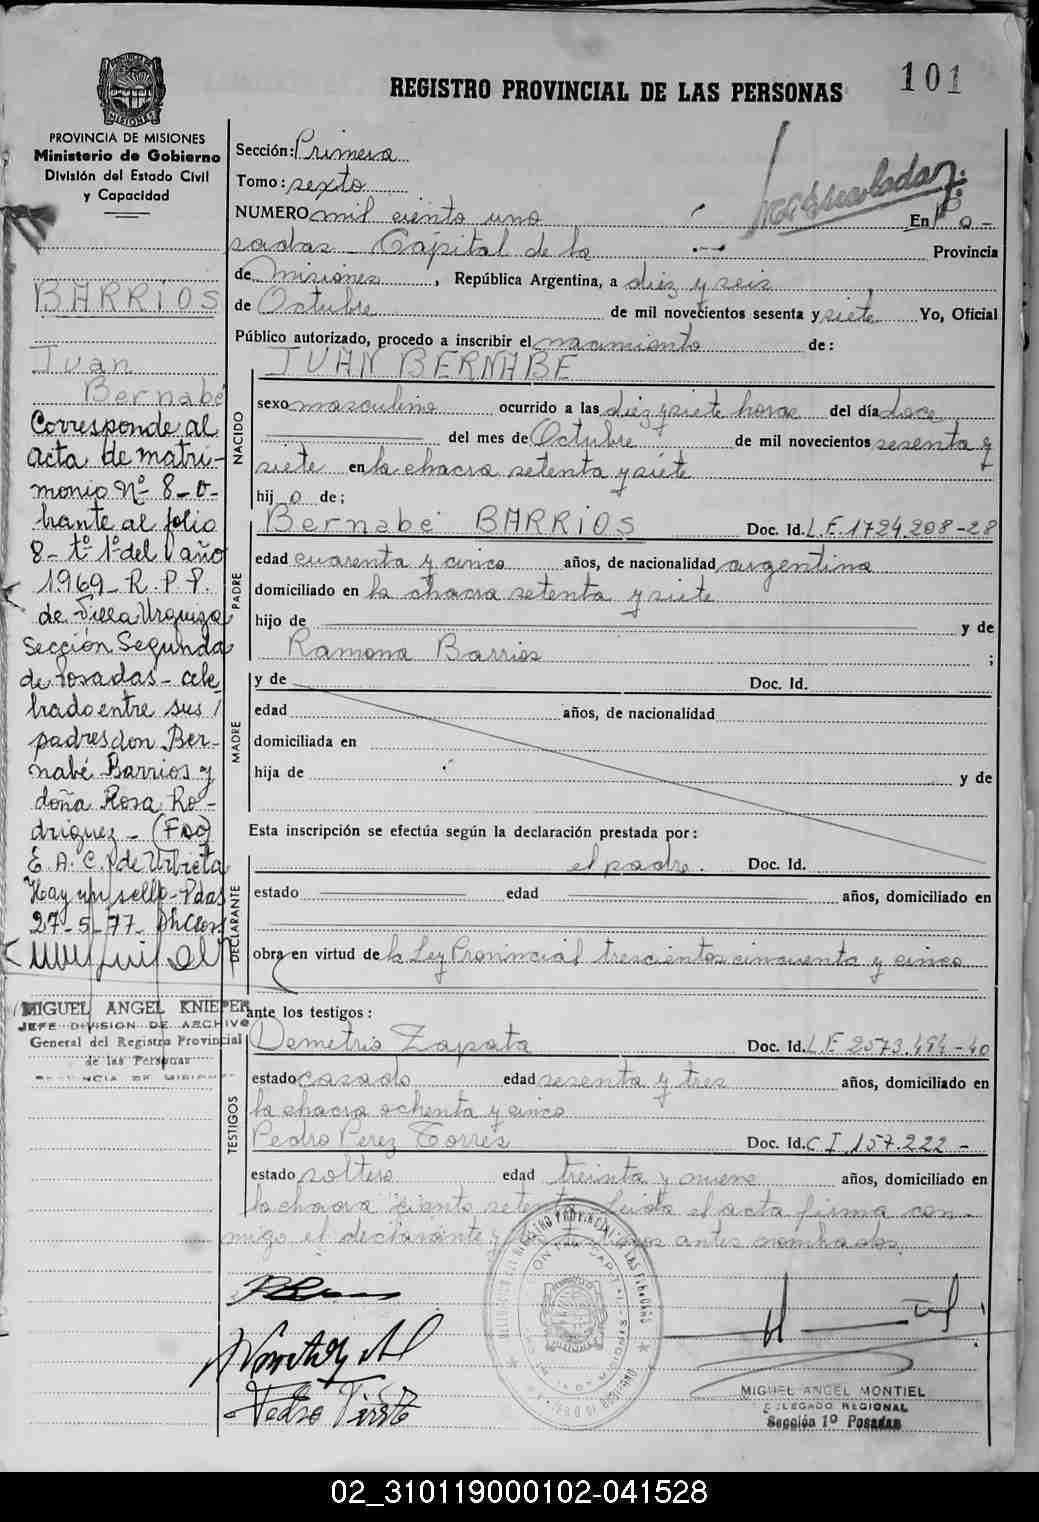 101
REGISTRO PROVINCIAL DE LAS PERSONAS
PROVINCIA DE MISIONES
Ministerio de Gobierno
División del Estado Civil
y Capacidad
BARRIOS
Juan
Bernabé
Corresponde al
acta de matri-
monio Nº 8-o-
brante al folio
8-tº 1º del año
1969-R.P.P.
de Villa Urquiza
Sección Segunda
de Posadas-cele
brado entre sus
padres don Ber-
nabé Barrios y
doña Rosa Ro-
driguez-(Fdo)
E.A.C. de Urbieta
Hay un sello-Pdas
27-5-77-
MIGUEL ANGEL KNIEPER
JEFE DIVISION DE ARCHIVO
General del Registro Provincial
de las Personas
PROVINCIA DE MISIONES
Sección: Primera
Tomo: sexto
NUMERO mil ciento uno En Po-
sadas-Capital de la Provincia
de Misiones, República Argentina, a diez y seis
de Octubre de mil novecientos sesenta y siete Yo, Oficial
Público autorizado, procedo a inscribir el nacimiento de:
JUAN BERNABE
NACIDO
sexo masculino ocurrido a las diez y siete horas del día doce
del mes de Octubre de mil novecientos sesenta y
siete en la chacra setenta y siete
hijo de;
PADRE
Bernabé BARRIOS Doc. Id. L.E. 1724.208-28
edad cuarenta y cinco años, de nacionalidad argentina
domiciliado en la chacra setenta y siete
hijo de y de
Ramona Barrios ;
MADRE
y de Doc. Id.
edad años, de nacionalidad
domiciliada en
hija de y de
Esta inscripción se efectúa según la declaración prestada por:
DECLARANTE
el padre. Doc. Id.
estado edad años, domiciliado en
obra en virtud de la Ley Provincial trescientos cincuenta y cinco
ante los testigos:
TESTIGOS
Demetrio Zapata Doc. Id. L.E 2573.494-40
estado casado edad sesenta y tres años, domiciliado en
la chacra ochenta y cinco
Pedro Perez Torres Doc. Id. C I. 157.222-
estado soltero edad treinta y nueve años, domiciliado en
la chacra ciento setenta Leida el acta firma con-
migo el declarante y los testigos antes nombrados.
MIGUEL ANGEL MONTIEL
DELEGADO REGIONAL
Sección 1º Posadas
02_310119000102-041528